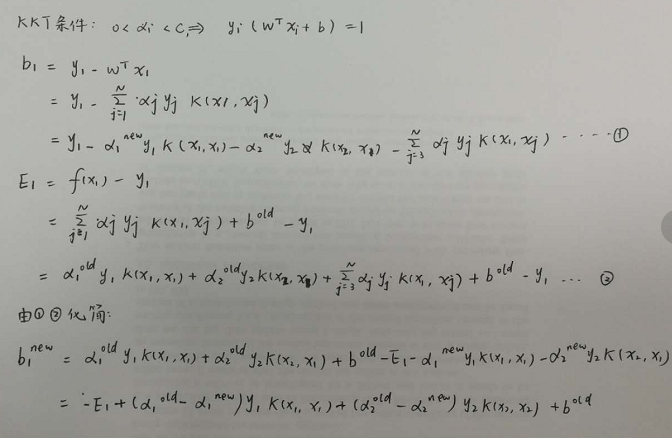 KKT条件: 0 < αi < C, ⇒ yi (w^T xi + b) = 1
b1 = y1 - w^T x1
= y1 - Σ_{j=1}^{N} αj yj K(x1, xj)
= y1 - α1^new y1 K(x1, x1) - α2^new y2 K(x2, x1) - Σ_{j=3}^{N} αj yj K(x1, xj) ····· ①
E1 = f(x1) - y1
= Σ_{j=1}^{N} αj yj K(x1, xj) + b^old - y1
= α1^old y1 K(x1, x1) + α2^old y2 K(x2, x1) + Σ_{j=3}^{N} αj yj K(x1, xj) + b^old - y1 ... ②
由①②化简:
b1^new = α1^old y1 K(x1, x1) + α2^old y2 K(x2, x1) + b^old - E1 - α1^new y1 K(x1, x1) - α2^new y2 K(x2, x1)
= -E1 + (α1^old - α1^new) y1 K(x1, x1) + (α2^old - α2^new) y2 K(x2, x2) + b^old